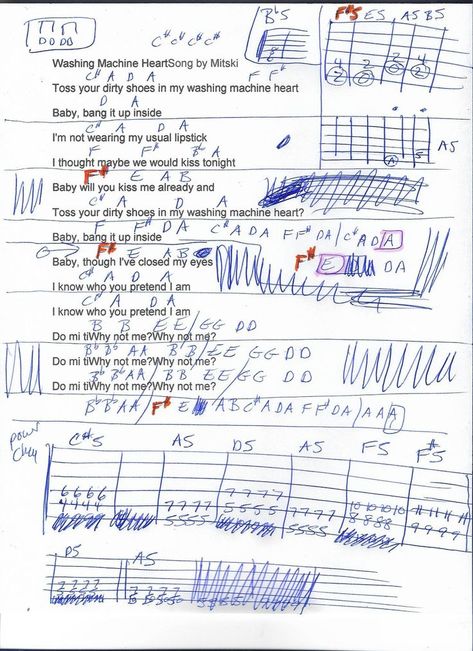 D D D D
C# C# C# C#
Bb5
F#5 E5 A5 B5
Washing Machine HeartSong by Mitski
C# A D A F F#
Toss your dirty shoes in my washing machine heart
D A
Baby, bang it up inside
C# A D A
I'm not wearing my usual lipstick
A5
F F# Bb A
I thought maybe we would kiss tonight
F# E A B
Baby will you kiss me already and
C# A D A
Toss your dirty shoes in my washing machine heart?
F F# D A C# A D A F F# D A / C# A D A
Baby, bang it up inside
F# E A B F# E D A
Baby, though I've closed my eyes
C# A D A
I know who you pretend I am
C# A D A
I know who you pretend I am
B B E E / G G D D
Do mi tiWhy not me?Why not me?
Bb Bb A A / B B / E E G G D D
Do mi tiWhy not me?Why not me?
Bb Bb A A / B B E E G G D D
Do mi tiWhy not me?Why not me?
Bb Bb A A / F# E A B C# A D A F F# D A / A A A
C#5 A5 D5 A5 F5 F#5
6 6 6 6 7 7 7 7 10 10 10 10 11 11 11 11
4 4 4 4 7 7 7 7 5 5 5 5 7 7 7 7 8 8 8 8 9 9 9 9
5 5 5 5 5 5 5 5
D5 A5
7 7 7 7 7 7 7 7